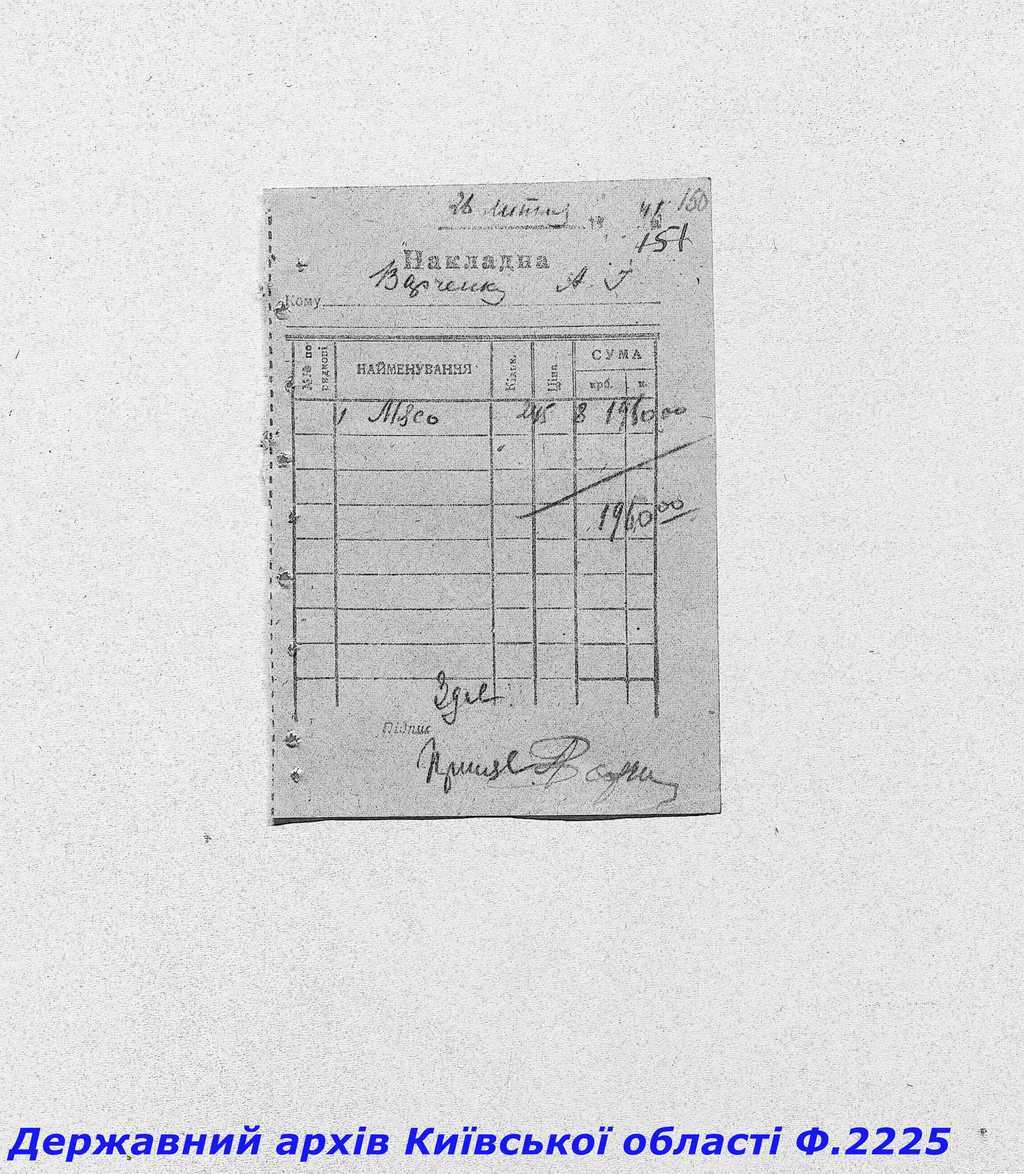 26 лютня 19 41 150
151
Накладна
Кому Варченку А. Г
№№ по рядкові НАЙМЕНУВАННЯ Кільк. Ціна СУМА
крб. к.
1 Мясо 245 8 1960 00
1960 00
Здав
Підпис
Прийняв
Державний архів Київської області Ф.2225